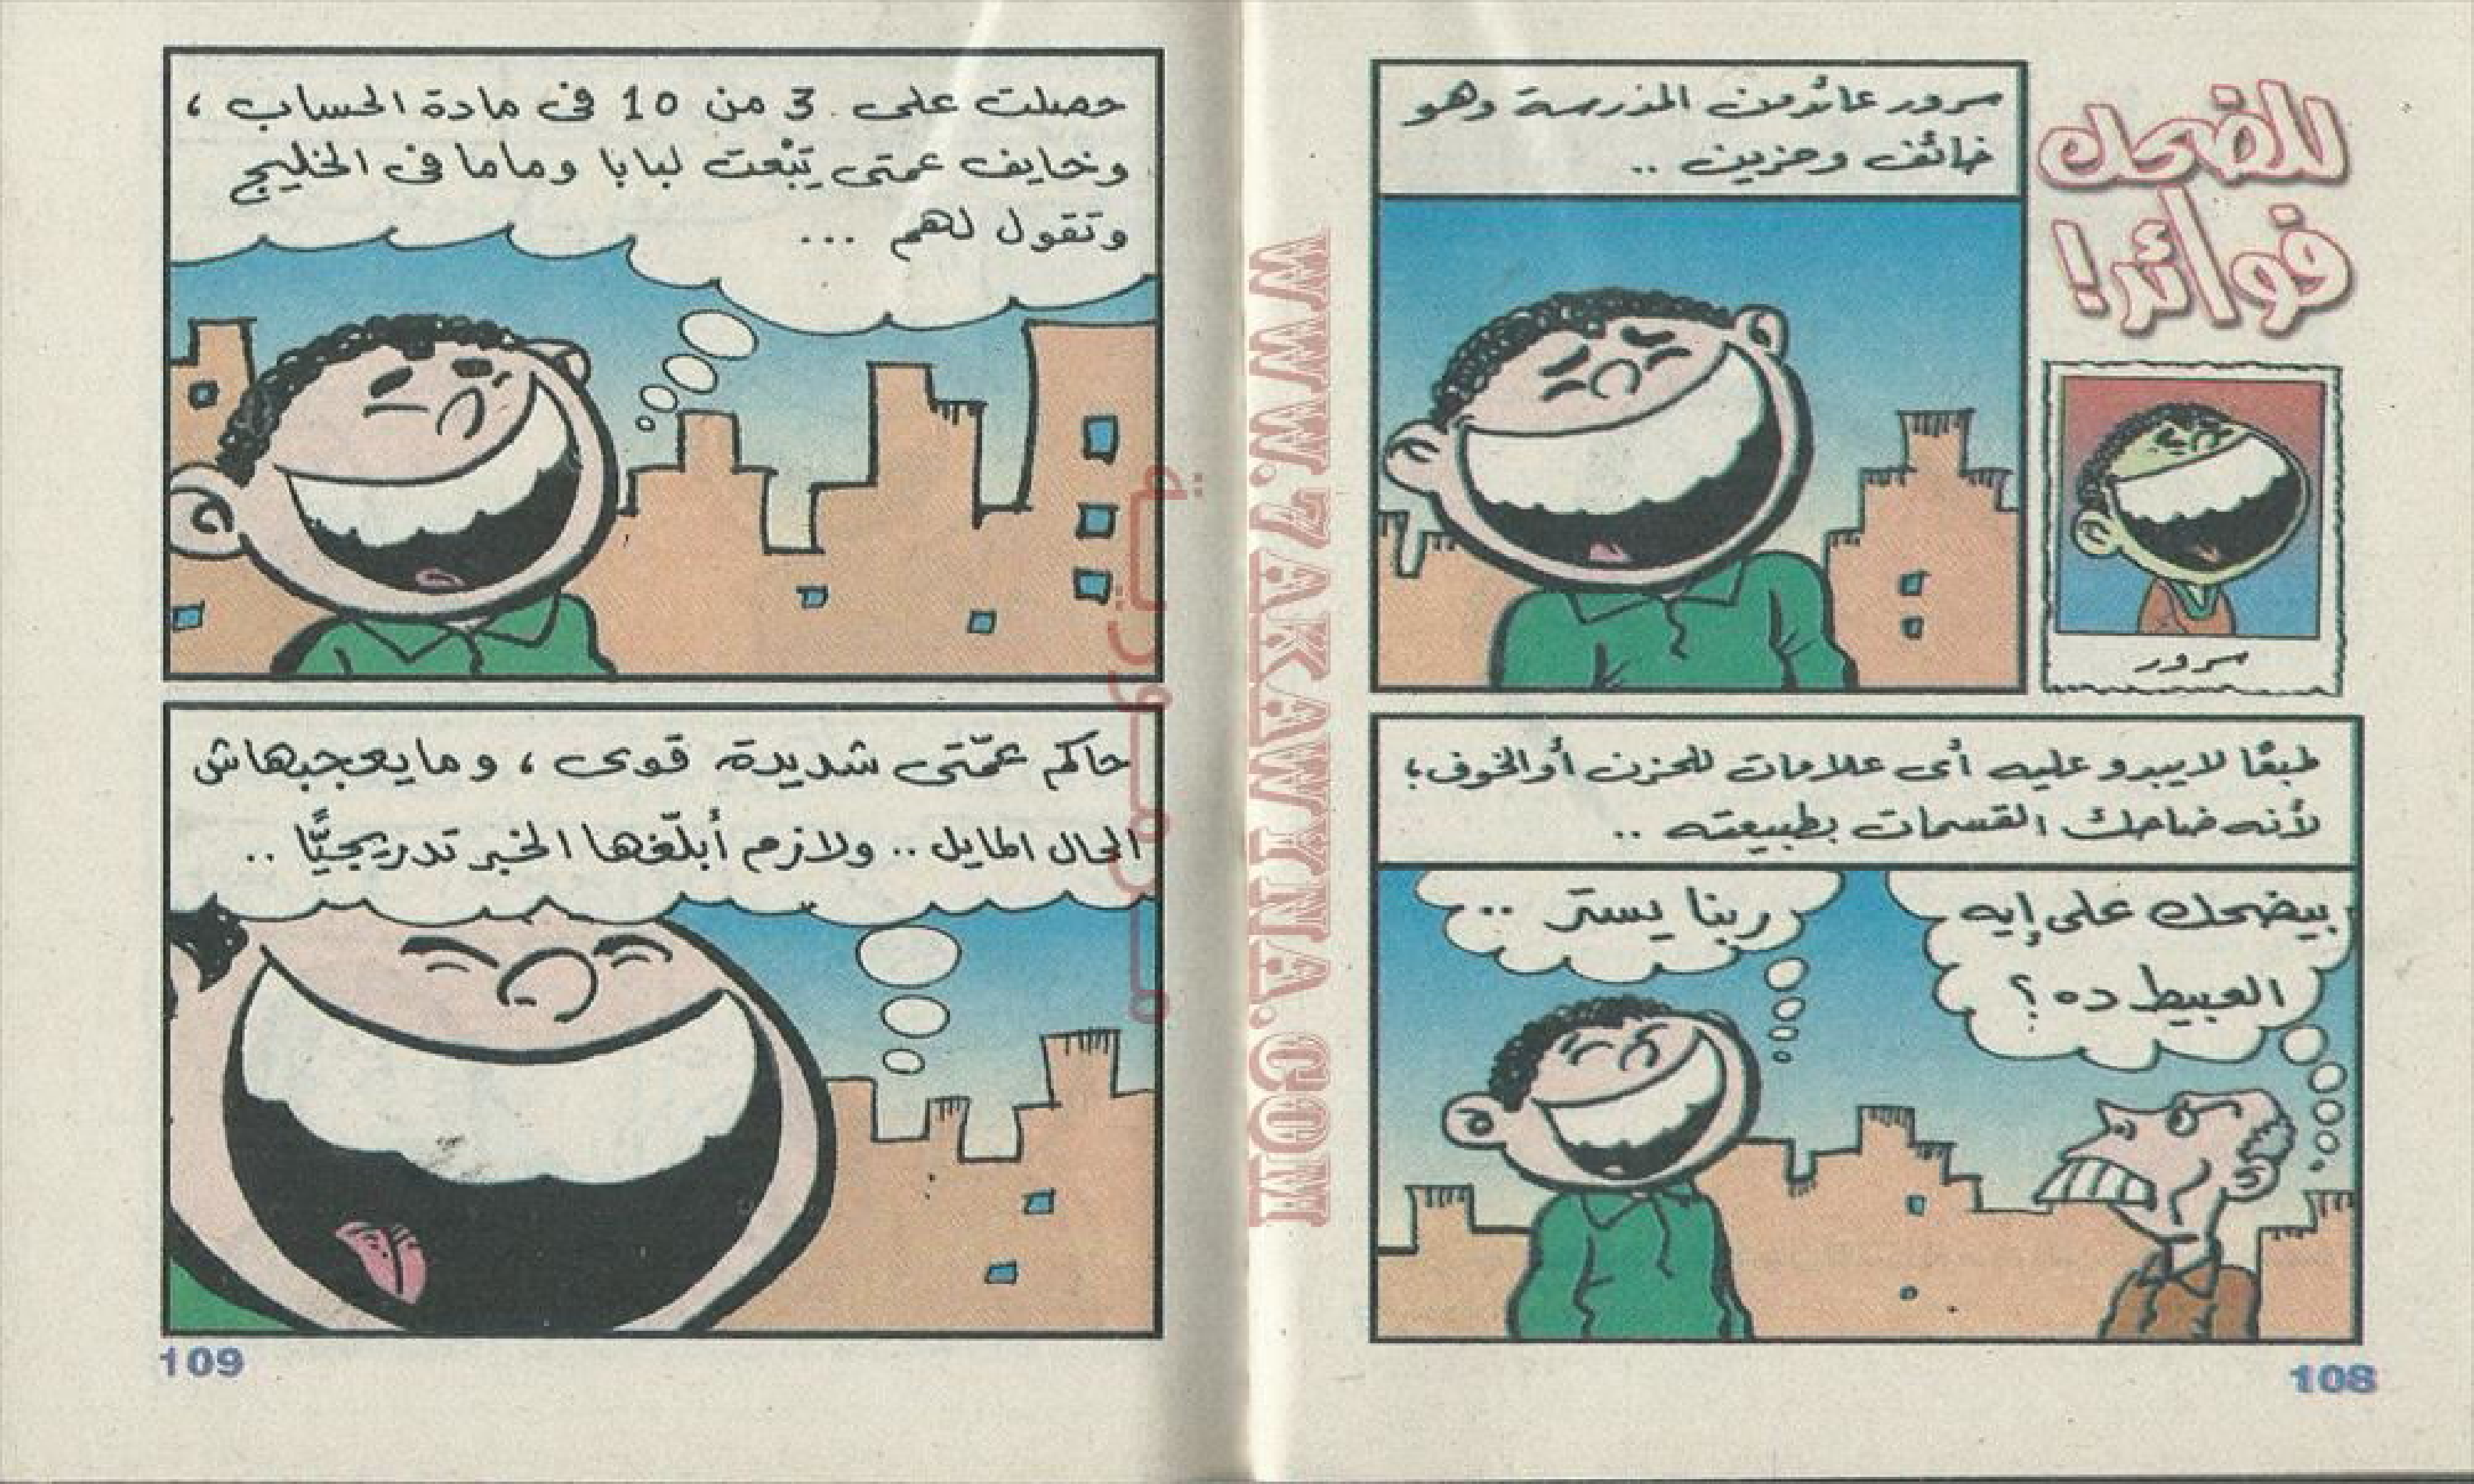 للضحك
فوائد!
سرور
سرور عائد من المدرسة وهو
خائف وحزين ..
طبعًا لا يبدو عليه أى علامات للحزن أو الخوف ،
لأنه ضاحك القسمات بطبيعته ..
بيضحك على إيه
العبيط ده ؟
ربنا يستر ..
108
حصلت على 3 من 10 فى مادة الحساب ،
وخايف عمتى تِبْعت لبابا وماما فى الخليج
وتقول لهم ...
حاكم عمّتى شديدة قوى ، وما يعجبهاش
الحال المايل .. ولازم أبلّغها الخبر تدريجيًّا ..
109
WWW.7AKAWINA.COM